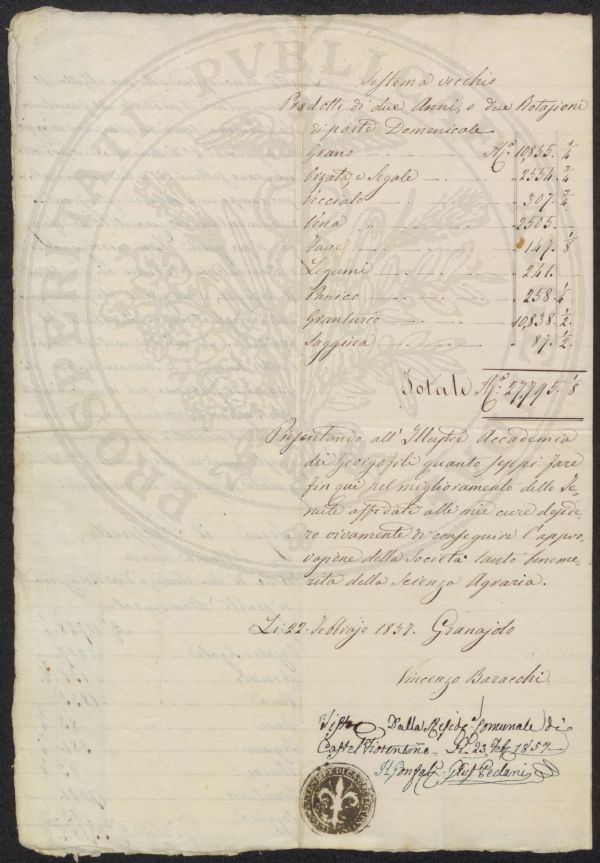 Sistema vecchio
Prodotti di due Anni, o due Rotazioni
di parte Domenicale
Grano — M.ª 10,855. 1/4
Vezzata, e Segale — " 2554. 2/4
Vecciato — " 307. 2/4
Vena — " 2505.
Fave — " 147. 1/8
Legumi — " 241.
Panico — " 258. 1/4
Granturco — 10,838. 1/2
Saggina — " 87. 1/2
Totale M.ª 27,795. 1/8
Presentando all' Illustre Accademia
dei Georgofili quanto seppi fare
fin qui pel miglioramento delle Te-
nute affidate alle mie cure deside-
ro vivamente di conseguire l'appro-
vazione della Società tanto beneme-
rita della Scienza Agraria.
Li: 22. Febbrajo 1857. Granajolo
Vincenzo Baracchi.
Visto Dalla Resid.ª Comunale di
Castel Fiorentino. Li 23. Feb. 1857
Il Gonfal.
PROSPERITATI PVBLIC